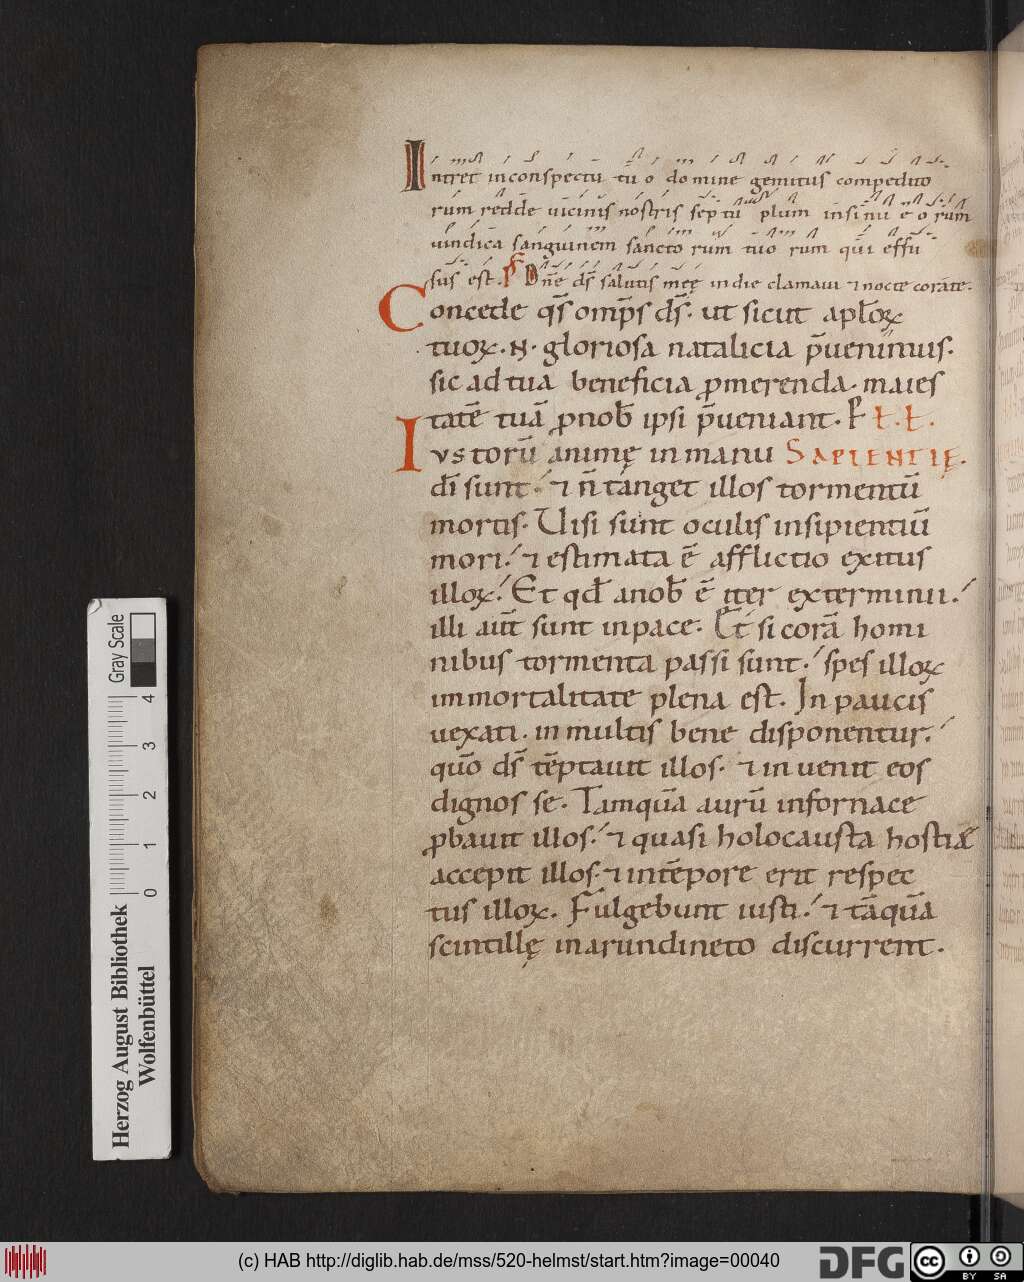 Intret inconspectu tu o domine gemitus compedito
rum redde uicinis nostris septu plum insinu e o rum
uindica sanguinem sancto rum tuo rum qui effu
sus est. Ps Dñe ds̄ salutis meę in die clamaui ⁊ nocte corāte.
Concede qs̄ omp̄s ds̄. ut sicut apl̄oꝝ
tuoꝝ .N. gloriosa natalicia p̄uenimus.
sic ad tua beneficia ꝓmerenda. maies
tatē tuā ꝓnob̄ ipsi p̄ueniant. P
Iustorū animę in manu SAPIENTIĘ.
dī sunt. ⁊ n̄ tanget illos tormentū
mortis. Uisi sunt oculis insipientiū
mori. ⁊ estimata ē afflictio exitus
illoꝝ. Et qd̄ anob̄ ē iter exterminii.
illi aut̄ sunt inpace. Et si corā homi
nibus tormenta passi sunt. spes illoꝝ
immortalitate plena est. In paucis
uexati. in multis bene disponentur.
quō ds̄ tēptauit illos. ⁊ inuenit eos
dignos se. Tamquā aurū infornace
ꝓbauit illos. ⁊ quasi holocausta hostiæ
accepit illos. ⁊ intēpore erit respec
tus illoꝝ. Fulgebunt iusti. ⁊ tāquā
scintillę inarundineto discurrent.
Gray Scale
4 3 2 1 0
Herzog August Bibliothek
Wolfenbüttel
(c) HAB http://diglib.hab.de/mss/520-helmst/start.htm?image=00040
DFG
cc BY SA